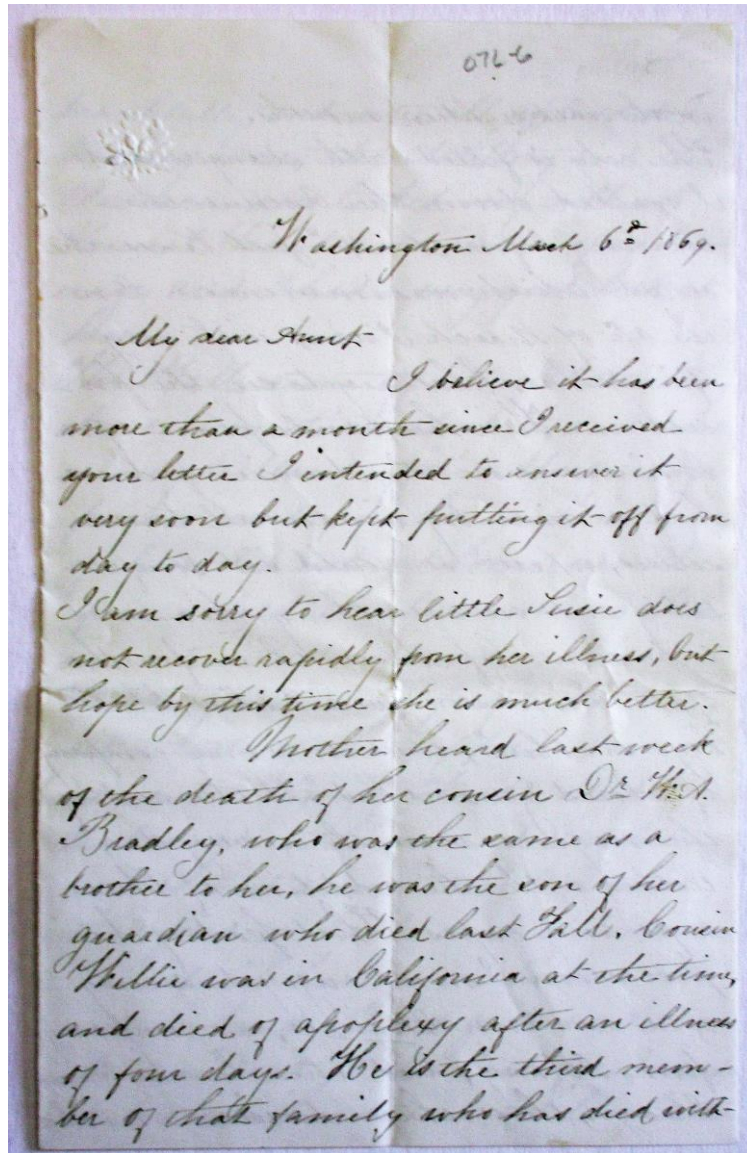 076-6
Washington March 6th 1869.
My dear Aunt
I believe it has been
more than a month since I received
your letter I intended to answer it
very soon but kept putting it off from
day to day.
I am sorry to hear little Susie does
not recover rapidly from her illness, but
hope by this time she is much better.
Mother heard last week
of the death of her cousin Dr W. A.
Bradley, who was the same as a
brother to her, he was the son of her
guardian who died last Fall. Cousin
Willie was in California at the time,
and died of apoplexy after an illness
of four days. He is the third mem-
ber of that family who has died with-